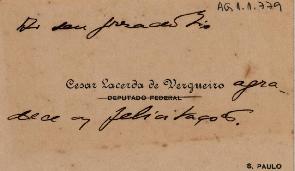 AG.1.1.779
Ao seu prezado Tio
Cesar Lacerda de Vergueiro agra-
DEPUTADO FEDERAL
dece as felicitações.
S. PAULO